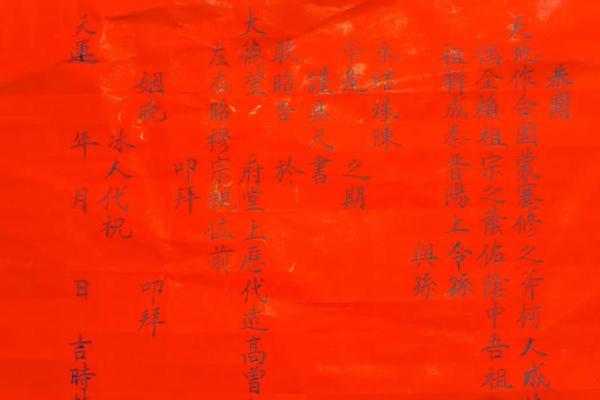 恭聞
天地作合固蒙蹇修之斧柯人成
偶全賴祖宗之蔭佑陰中吾祖
祖聯成秦晋陽上令孫
與孫
永結珠陳
今逢 之期
謹具尺書
敢昭告 於
大德望 府堂上歷代遠高曾
左右昭穆宗親位前
叩拜
姻晚 叩拜
冰人代祝
天運 年 月 日 吉時